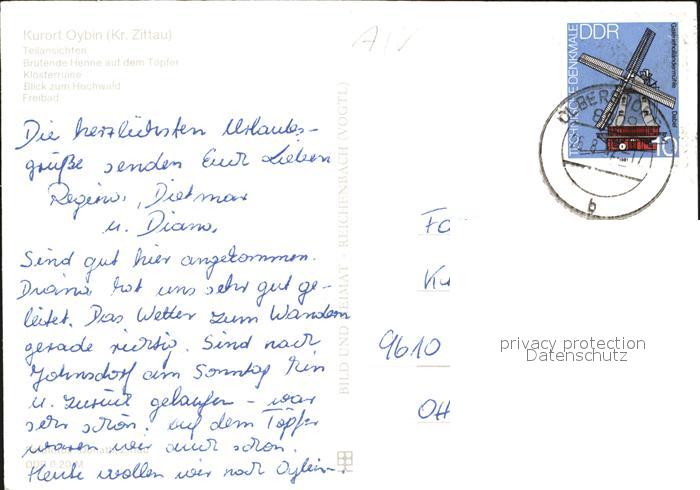 Kurort Oybin (Kr. Zittau)
Teilansichten
Brütende Henne auf dem Töpfer
Klosterruine
Blick zum Hochwald
Freibad
Die herzlichsten Urlaubs-
grüße senden Euch Lieben
Regina, Dietmar
u. Diana.
Sind gut hier angekommen.
Diana hat uns sehr gut ge-
leitet. Das Wetter zum Wandern
gerade richtig. Sind nach
Johnsdorf am Sonntag hin
u. zurück gelaufen - war
sehr schön. Auf dem Töpfer
waren wir auch schon.
Heute wollen wir nach Oybin.
BILD UND HEIMAT · REICHENBACH (VOGTL)
DDR
TECHNISCHE DENKMALE
10
b
9610
privacy protection
Datenschutz